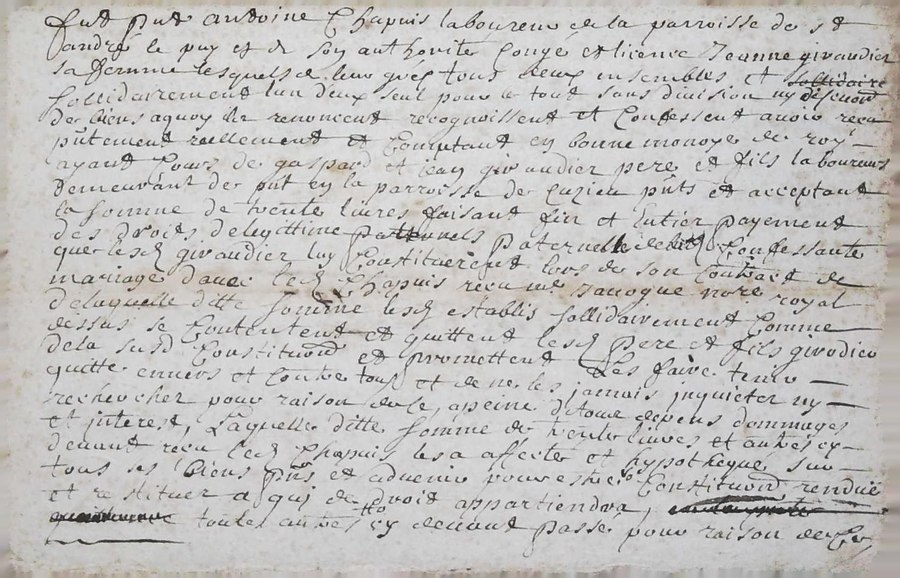 fut pnt antoine Chapuis laboureur de la parroisse de st
andré le puy et de son authorite Congé et licence Jeanne giraudier
sa femme lesquels de leur gré tous deux ensembles et sollidaire
sollidairement lun deux seul pour le tout sans division ny discution
de biens aquoy ils renoncent recognoissent et Confessent avoir receu
pntement reellement et Comptant en bonne monoye de roy
ayant Cours de gaspard et jean giraudier pere et fils laboureurs
demeurant de pnt en la parroisse de Cuzieu pnts et acceptant
la somme de trente livres faisant fin et Entier payement
des droits delegittime paternels paternelle de lad Confessante
que lesd giraudier luy Constituerent lors de son Contract de
mariage davec led Chapuis receu me Janoque nore royal
delaquelle ditte somme lesd establis sollidairement Comme
dessus se Contentent et quittent lesd pere et fils girodier
dela susd Constituon et promettent Les faire tenir
quitte envers et Contre tous et de ne les jamais inquieter ny
rechercher pour raison dele, apeine de tous depens dommages
et interest, Laquelle ditte somme de trente livres et autres cy
devant receu led Chapuis les a affecté et hypotheque sur
tous ses biens pns et advenir pour estre Constituon rendue
et restituer a qui de droit appartiendra,
toutes autres qtto cy devant passé pour raison de Ce